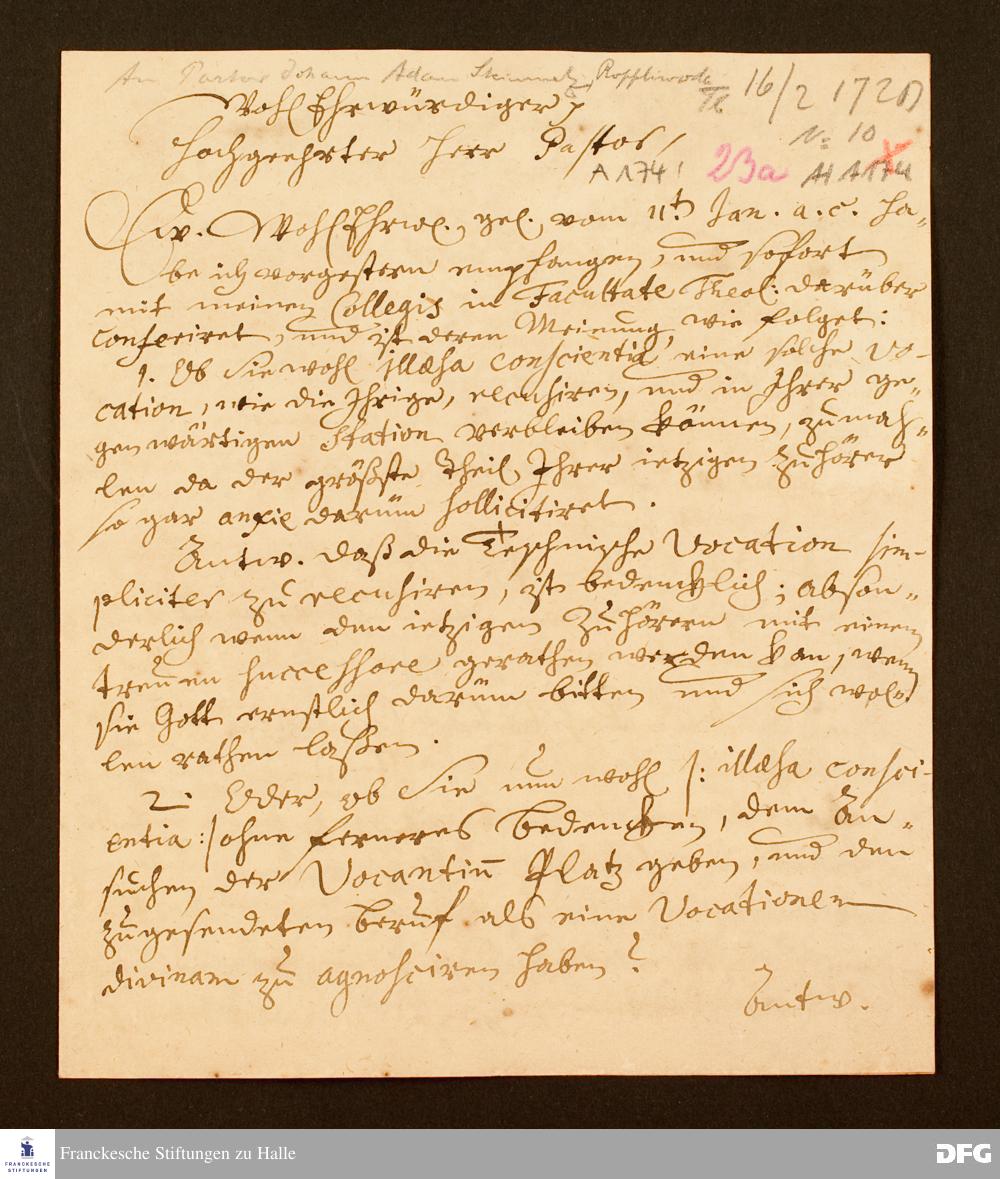 An Pastor Johann Adam Steinmetz, 16/2 1720
WohlEhrwürdiger,
Hochgeehrter Herr Pastor,
No 10
A 174! 23a A 174
Ew. WohlEhrw., gel. vom 11t. Jan. a. c. ha-
be ich vorgestern empfangen, und sofort
mit meinen Collegis in Facultate Theol: darüber
conferiret, und ist deren Meinung, wie folget:
1. Ob Sie wohl illæsa conscientia eine solche vo-
cation, wie die Ihrige, recusiren, und in Ihrer ge-
genwärtigen Station verbleiben können, zumah-
len da der größste Theil Ihrer ietzigen Zuhörer
so gar anxie darüm sollicitiret.
Antw. daß die Teschnische Vocation sim-
pliciter zu recusiren, ist bedencklich; abson-
derlich wenn den ietzigen Zuhörern mit einem
treuen successore gerathen werden kan, wenn
sie Gott ernstlich darüm bitten und sich wol-
len rathen laßen.
2. Oder, ob Sie nun wohl /: illæsa consci-
entia :/ ohne ferneres bedencken, dem An-
suchen der Vocantiu Platz geben, und den
zugesendeten beruf als eine Vocationem
divinam zu agnosciren haben?
Antw.
FRANCKESCHE
STIFTUNGEN
Franckesche Stiftungen zu Halle
DFG